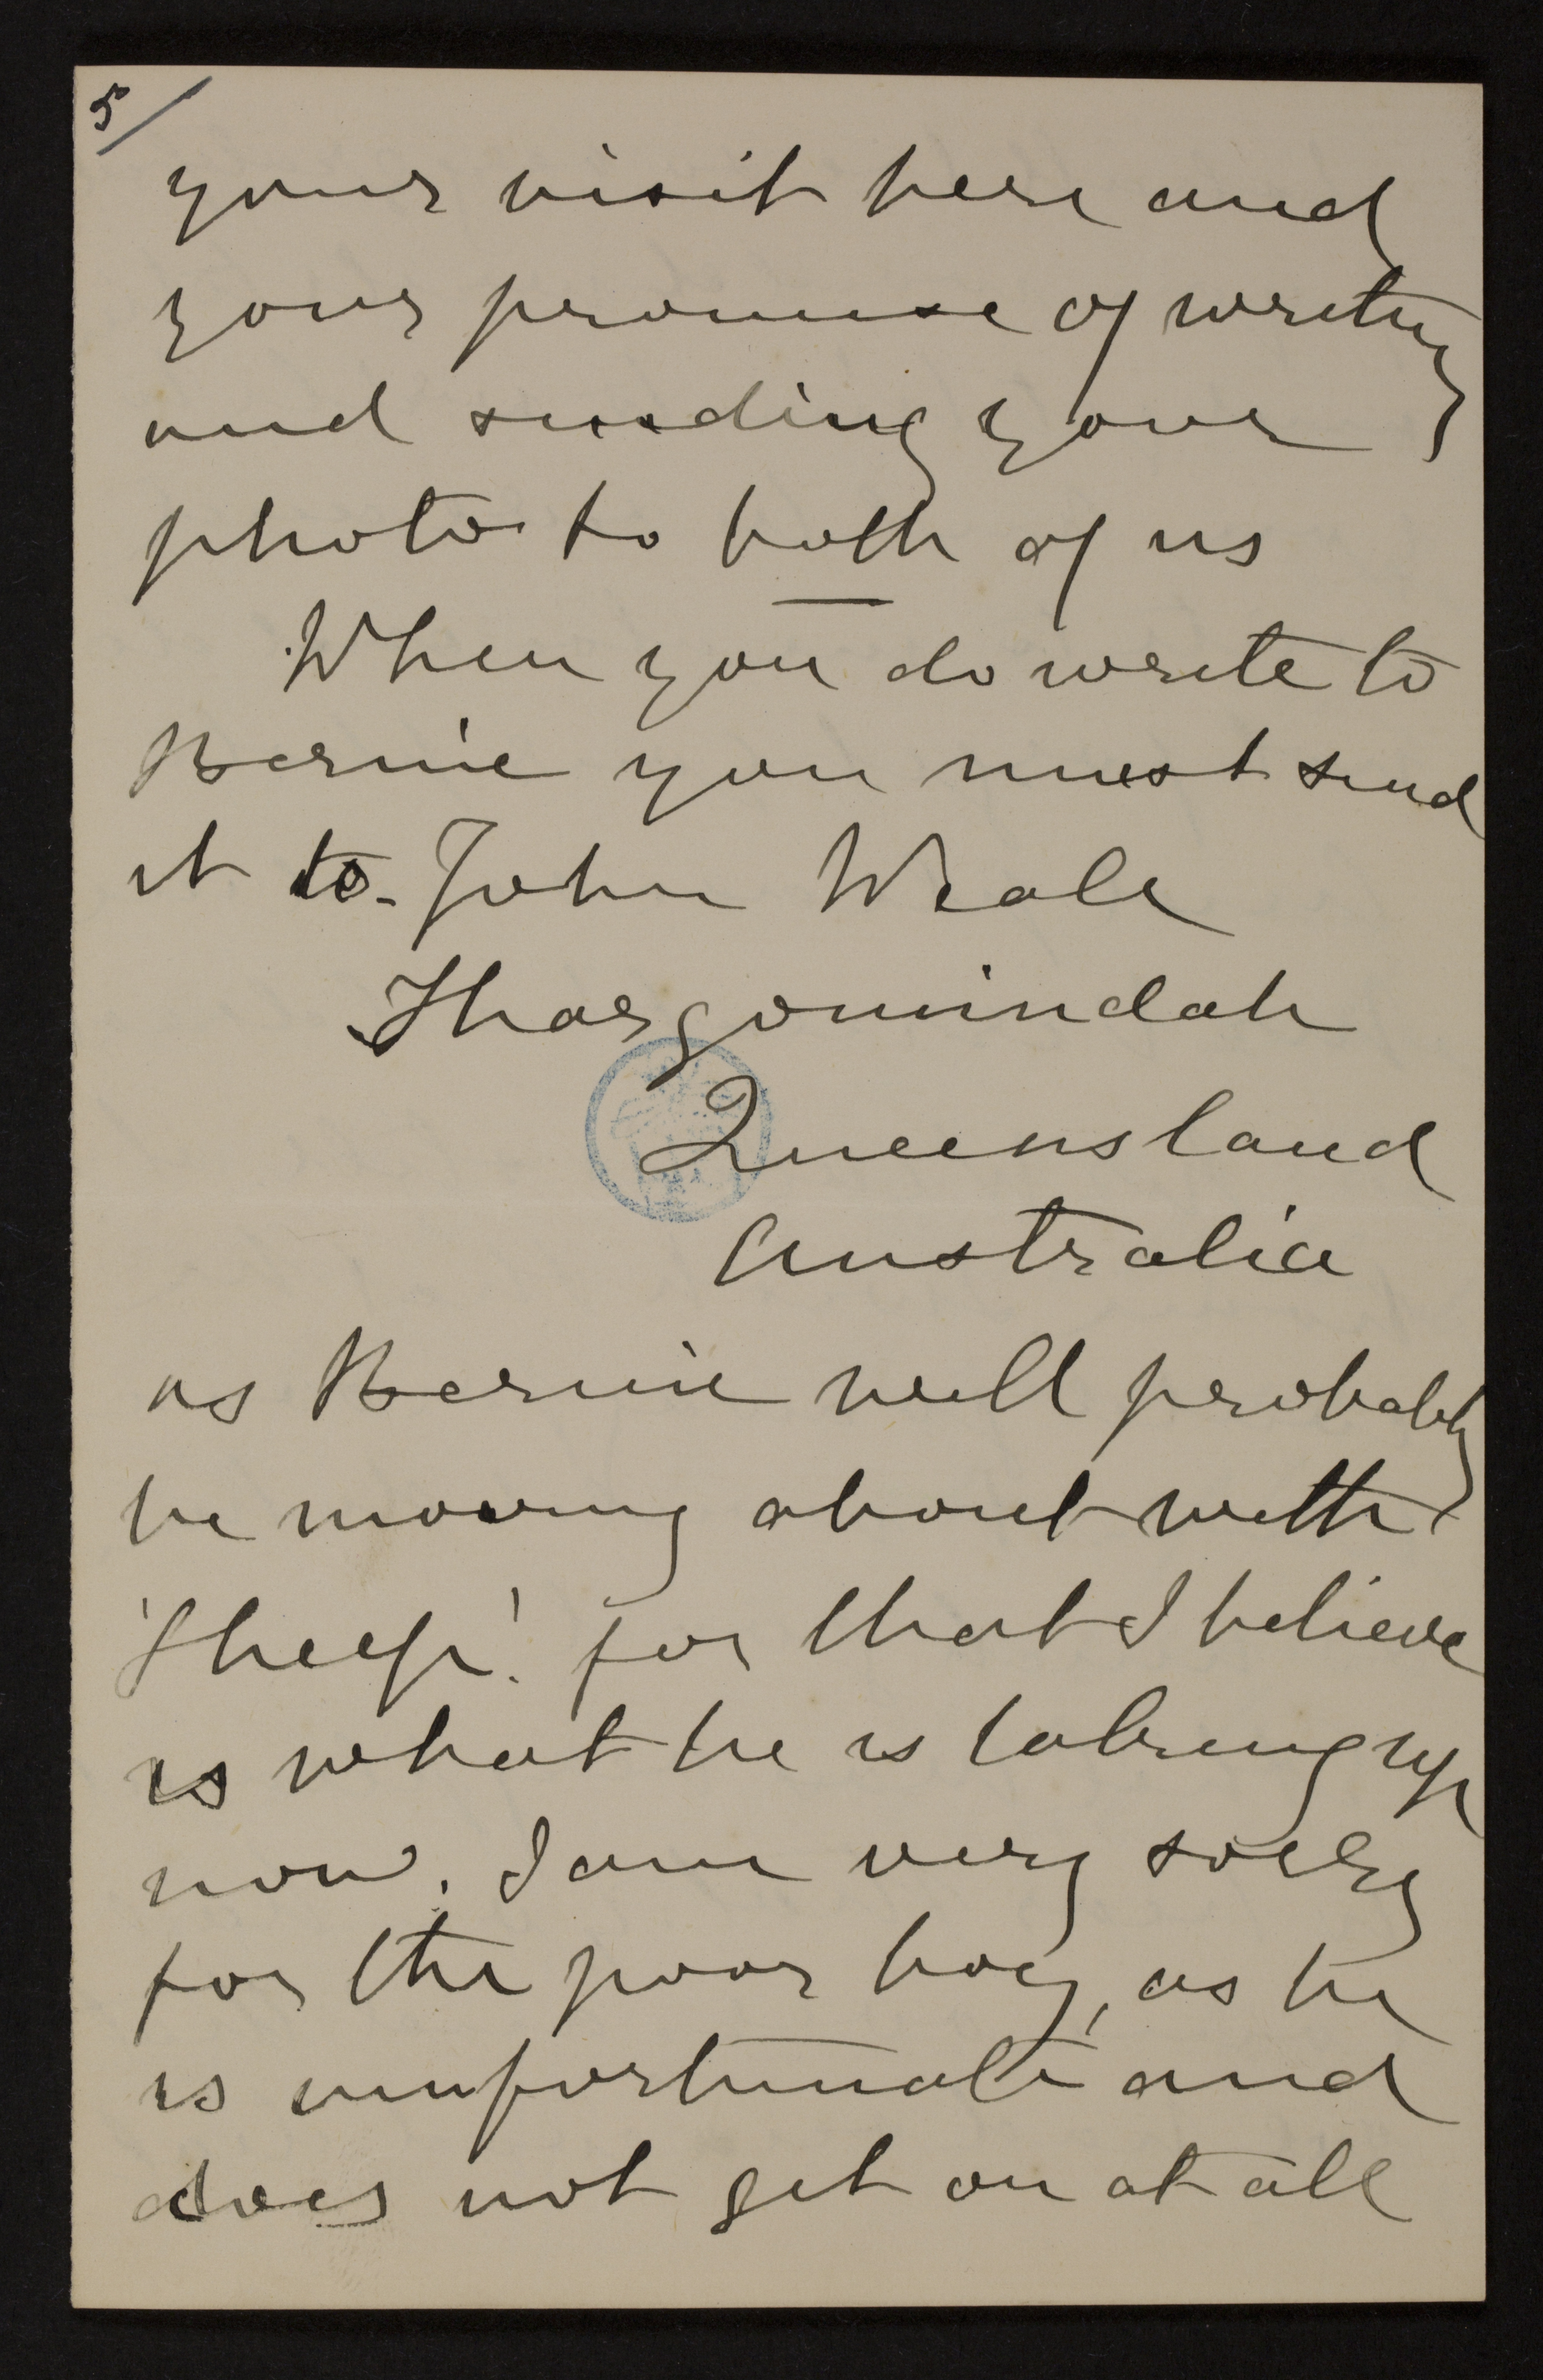 5/
your visit here and
your promise of writing
and sending your
photo to both of us
When you do write to
Bernie you must send
it to - John Weale
Thargomindah
Queensland
Australia
as Bernie will probably
be moving about with
'Sheep'. for that I believe
is what he is taking up
now. I am very sorry
for the poor boy, as he
is unfortunate and
does not get on at all